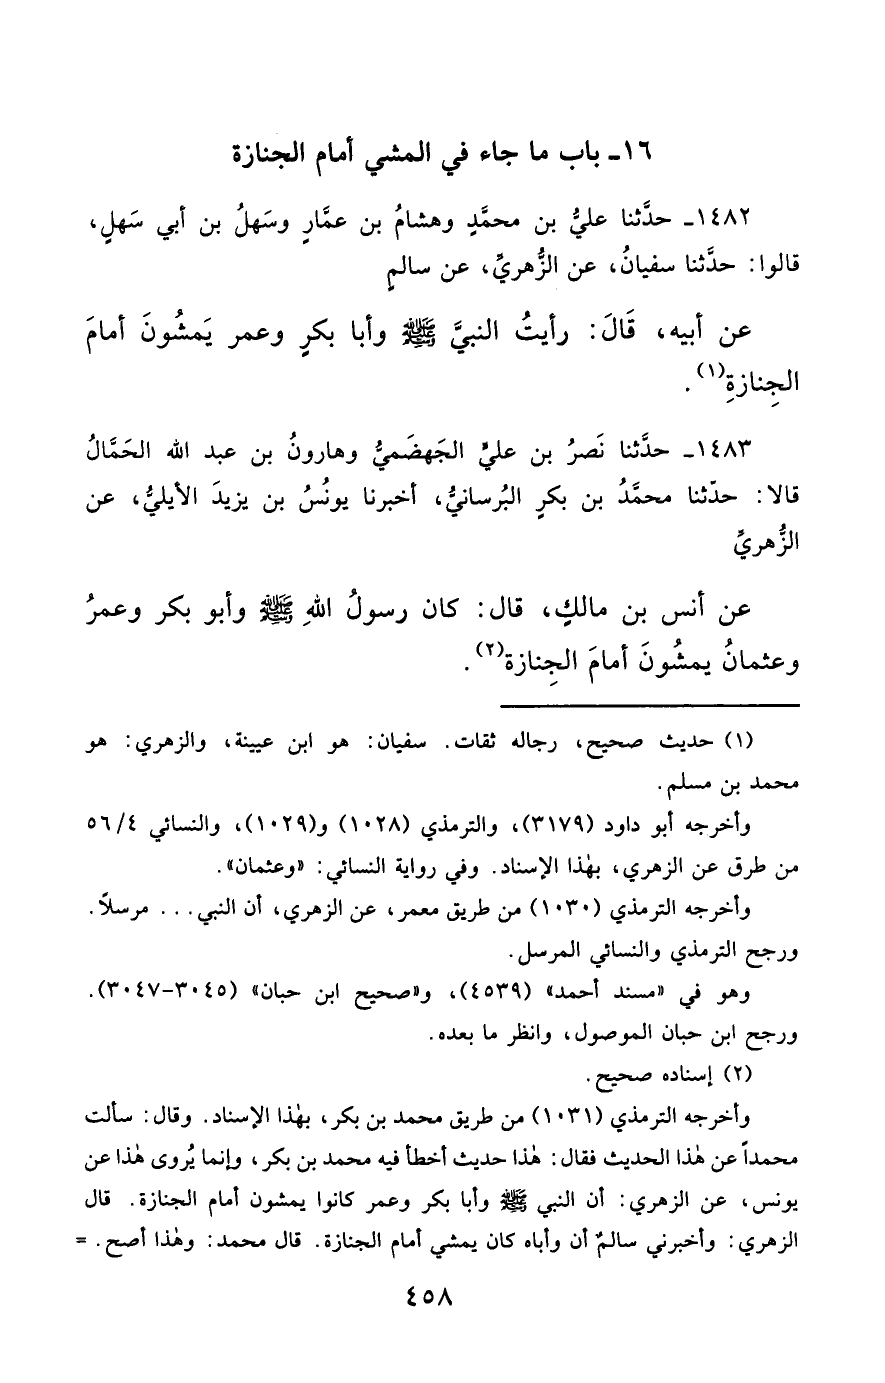 ١٦ـ باب ما جاء في المشي أمام الجنازة
١٤٨٢ـ حدَّثنا عليُّ بن محمَّدٍ وهشامُ بن عمَّارٍ وسَهلُ بن أبي سَهلٍ،
قالوا: حدَّثنا سفيانُ، عن الزُّهريِّ، عن سالمٍ
عن أبيه، قَالَ: رأيتُ النبيَّ ﷺ وأبا بكرٍ وعمر يَمشُونَ أمامَ
الجِنازةِ(١).
١٤٨٣ـ حدَّثنا نَصرُ بن عليٍّ الجَهضَميُّ وهارونُ بن عبد الله الحَمَّالُ
قالا: حدّثنا محمَّدُ بن بكرٍ البُرسانيُّ، أخبرنا يونُسُ بن يزيدَ الأيليُّ، عن
الزُّهريِّ
عن أنس بن مالكٍ، قال: كان رسولُ اللهِ ﷺ وأبو بكر وعمرُ
وعثمانُ يمشُونَ أمامَ الجِنازة(٢).
(١) حديث صحيح، رجاله ثقات. سفيان: هو ابن عيينة، والزهري: هو
محمد بن مسلم.
وأخرجه أبو داود (٣١٧٩)، والترمذي (١٠٢٨) و(١٠٢٩)، والنسائي ٥٦/٤
من طرق عن الزهري، بهٰذا الإسناد. وفي رواية النسائي: «وعثمان».
وأخرجه الترمذي (١٠٣٠) من طريق معمر، عن الزهري، أن النبي... مرسلاً.
ورجح الترمذي والنسائي المرسل.
وهو في «مسند أحمد» (٤٥٣٩)، و«صحيح ابن حبان» (٣٠٤٥-٣٠٤٧).
ورجح ابن حبان الموصول، وانظر ما بعده.
(٢) إسناده صحيح.
وأخرجه الترمذي (١٠٣١) من طريق محمد بن بكر، بهٰذا الإسناد. وقال: سألت
محمداً عن هٰذا الحديث فقال: هٰذا حديث أخطأ فيه محمد بن بكر، وإنما يُروى هٰذا عن
يونس، عن الزهري: أن النبي ﷺ وأبا بكر وعمر كانوا يمشون أمام الجنازة. قال
الزهري: وأخبرني سالمٌ أن وأباه كان يمشي أمام الجنازة. قال محمد: وهٰذا أصح. =
٤٥٨